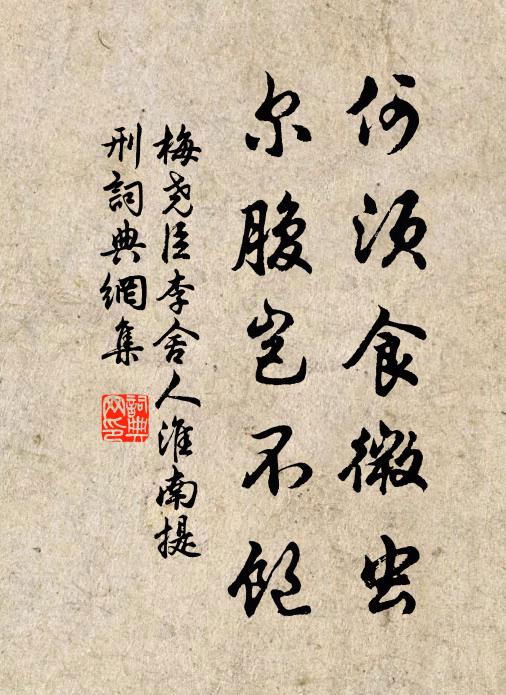 何须食微虫
尔腹岂不饱
梅尧臣李舍人淮南提
刑詞典網集
詞典網印